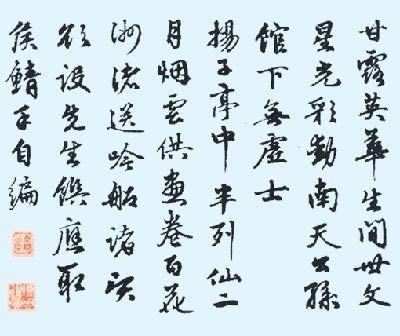 甘露英華生間世文
星光彩動南天公孫
館下無虛士
揚子亭中半列仙二
月烟雲供畫卷百花
洲渚送吟船諸賢
欲設先生饌應取
侯鯖手自編